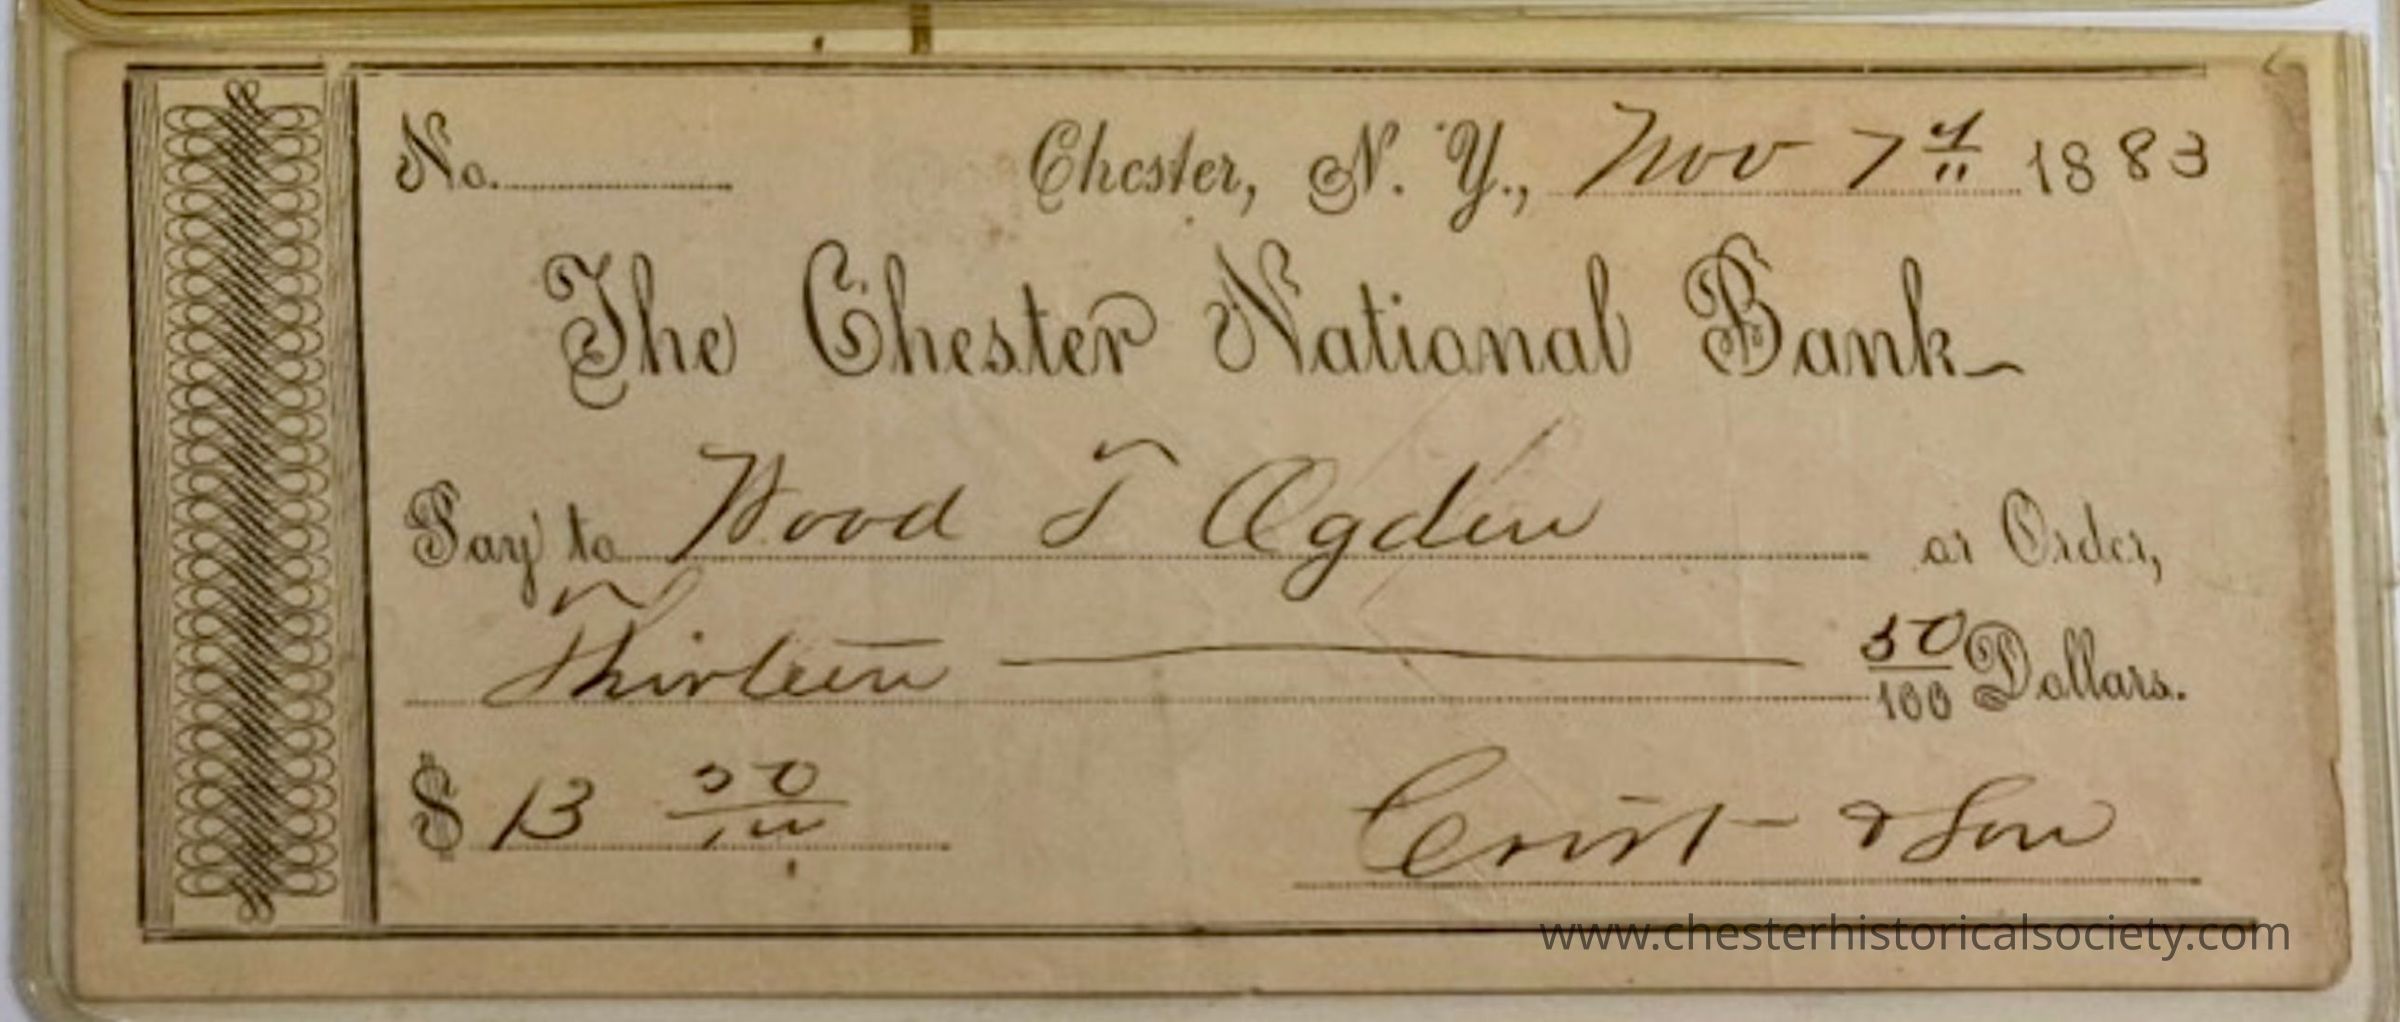 No. Chester, N. Y., Nov 7th 1883
The Chester National Bank
Pay to Wood T Ogden or Order,
Thirteen 50/100 Dollars.
$ 13 50/100 Crist & Son
www.chesterhistoricalsociety.com